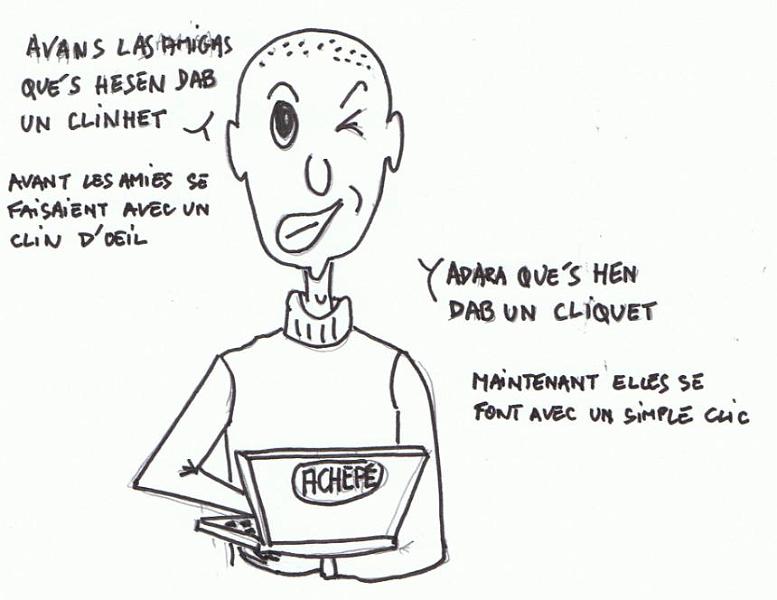 AVANS LAS AMIGAS
QUE'S HESEN DAB
UN CLINHET
AVANT LES AMIES SE
FAISAIENT AVEC UN
CLIN D'OEIL
ADARA QUE'S HEN
DAB UN CLIQUET
MAINTENANT ELLES SE
FONT AVEC UN SIMPLE CLIC
ACHEPÉ